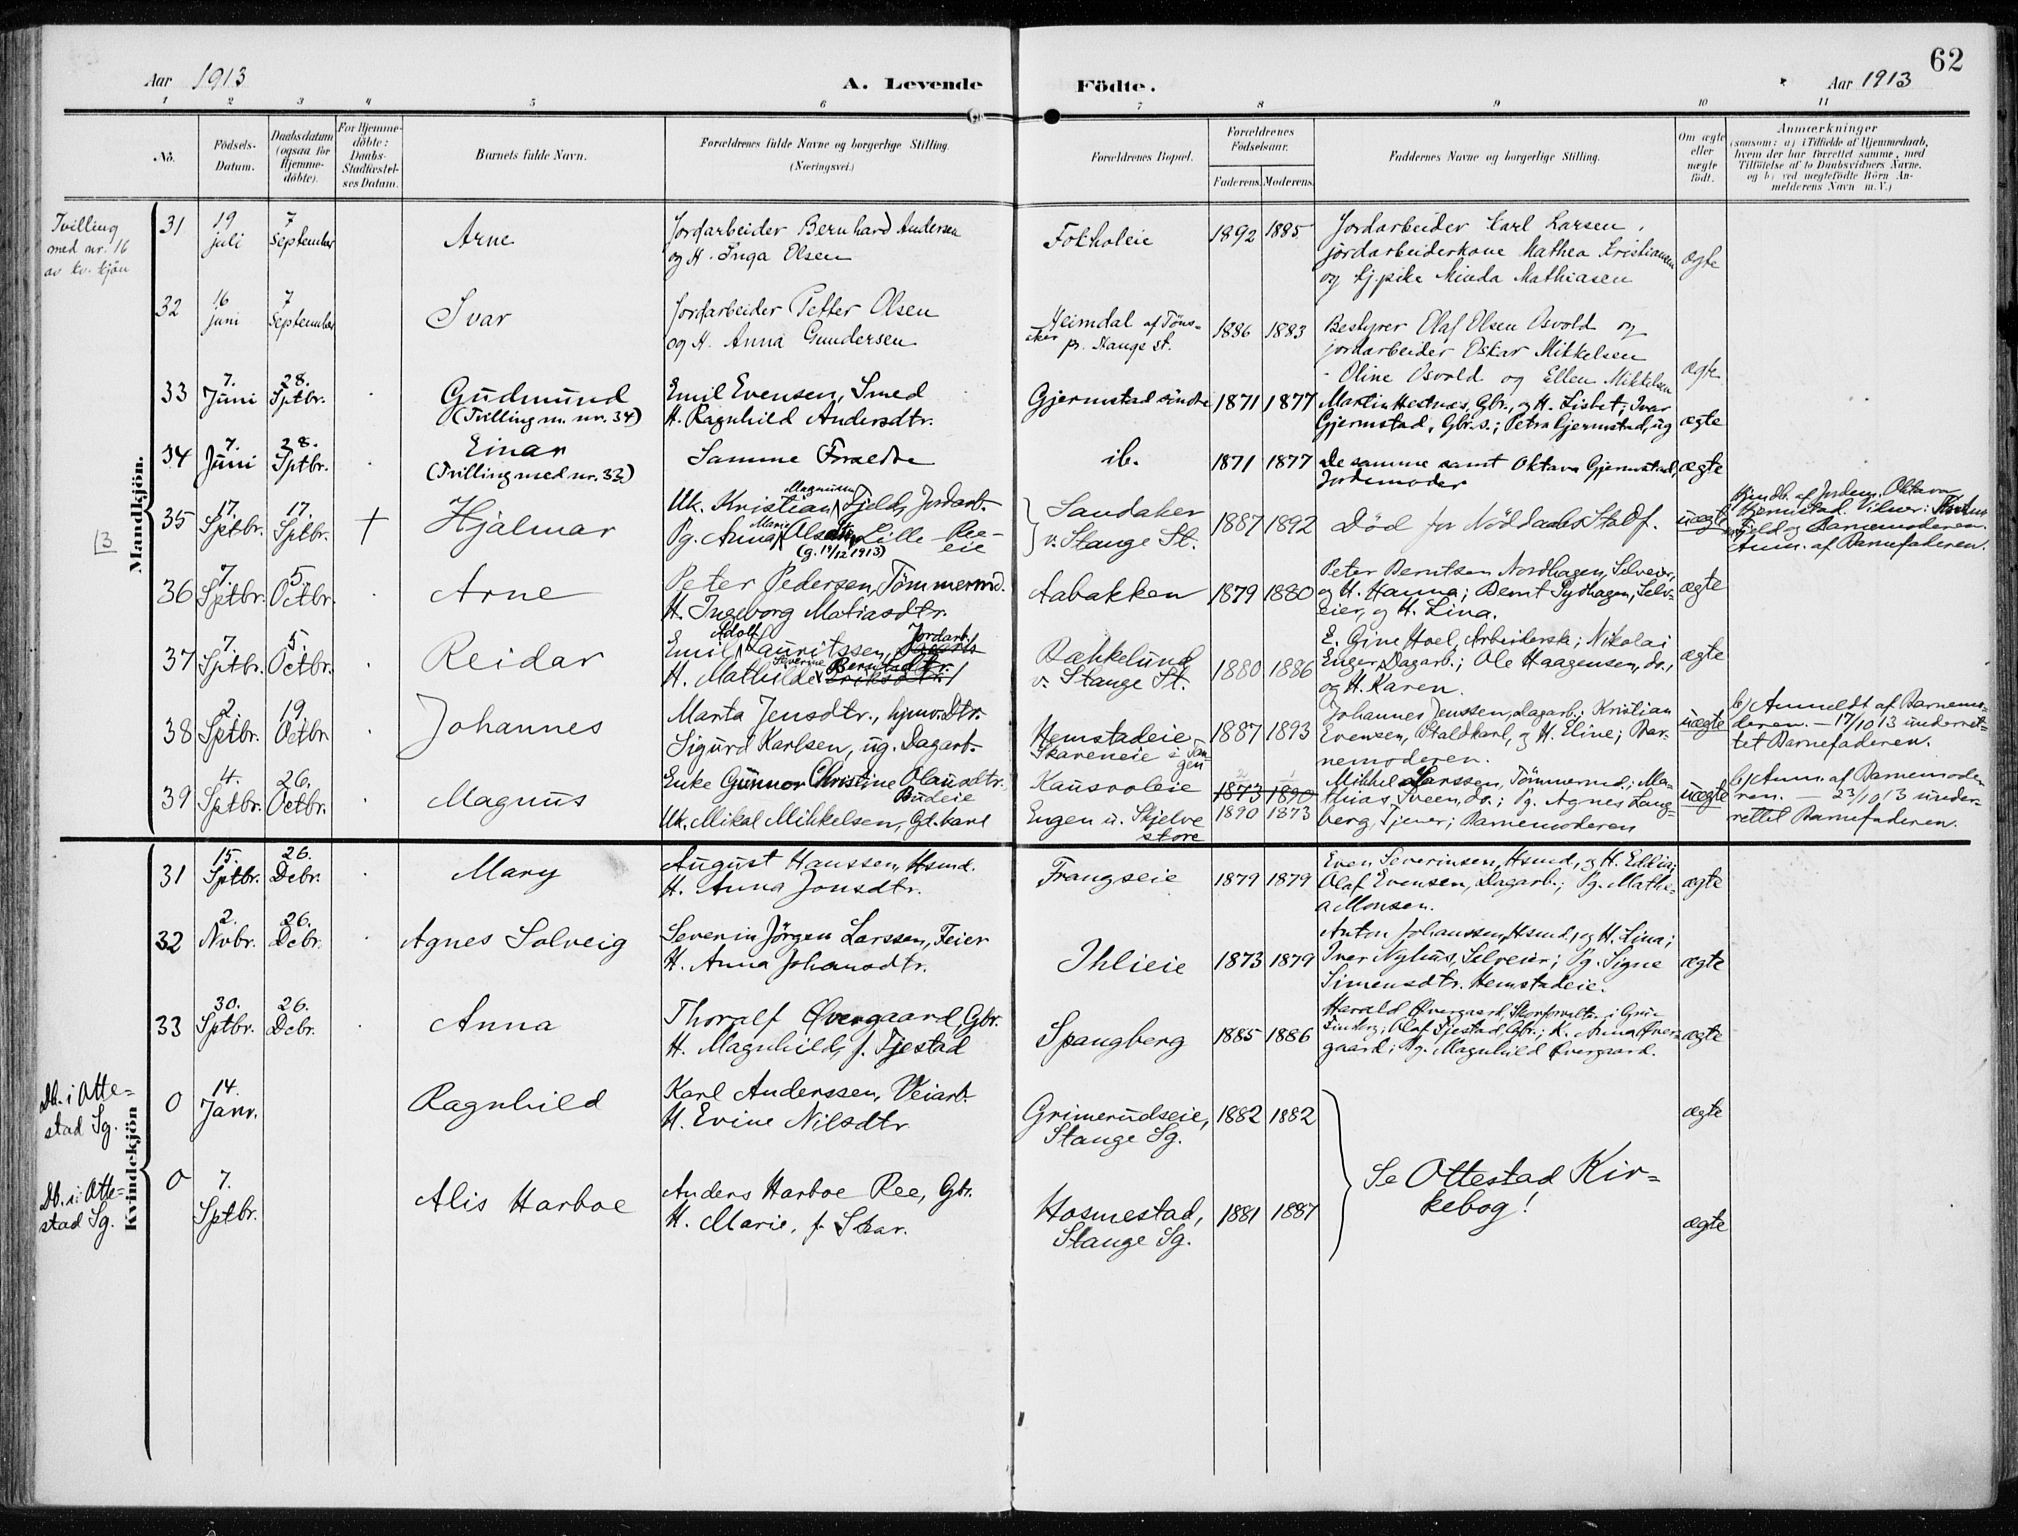 62
Aar 1913
A. Levende
Födte.
Aar 1913
1 2 3 4 5 6 7 8 9 10 11
No.
Födsels-
Datum.
Daabsdatum
(ogsaa for
Hjemme-
döbte).
For Hjemme-
döbte:
Daabs-
Stadfæstel-
ses Datum.
Barnets fulde Navn.
Forældrenes fulde Navne og borgerlige Stilling.
(Næringsvei.)
Forældrenes Bopæl.
Forældrenes
Födselsaar.
Faderens. Moderens.
Faddernes Navne og borgerlige Stilling.
Om ægte
eller
uægte
födt.
Anmærkninger
(saasom: a) i Tilfælde af Hjemmedaab,
hvem der har forrettet samme, med
Tilföielse af to Daabsvidners Navne.
og b) ved uægtefödte Börn An-
melderens Navn m. V.)
Mandkjön.
Tvilling
med nr. 16
av kv. kjön
31
19
juli
7
September
Arne
Jordarbeider Bernhard Andersen
og H. Inga Olsen
Fokholeie
1892 1885
Jordarbeider Karl Larsen,
jordarbeiderkone Mathea Kristiansen
og tj.pike Minda Mathiasen
ægte
32
16
juni
7
September
Ivar
Jordarbeider Petter Olsen
og H. Anna Gundersen
Heimdal af Töns-
aker
pr. Stange st.
1886 1883
Bestyrer Olaf Olsen Osvold og
jordarbeider Oskar Mikkelsen
Oline Osvold og Ellen Mikkelsen
ægte
33
7.
Juni
28.
Sptbr.
Gudmund
(Tvilling m. nr. 34)
Emil Evensen, Smed
H. Ragnhild Andersdtr.
Gjermstad söndre
1871 1877
Martin Hestnæs, Gbr., og H. Lisbet; Ivar
Gjermstad, Gbr.s.; Petra Gjermstad, ug
ægte
34
7.
Juni
28.
Sptbr.
Einar
(Tvilling med nr. 33)
Samme Forældre
ib.
1871 1877
De samme samt Oktava Gjermstad,
Jordemoder
ægte
13
35
17.
Sptbr.
17.
Sptbr.
†
Hjalmar
Uk. Kristian Magnussen Fjeld, Jordarb.
Pg. Anna Marie Olsen, Lille-Ree-
eie
(g. 14/12 1913)
Sandaker
v. Stange St.
1887 1892
Död för Nöddaabs Stadf.
uægte
Hjmdb. af Jordem. Oktava
Gjermstad. Vidner:
Fjeld og Barnemoderen.
Anm. af Barnefaderen.
36
7.
Sptbr.
5.
Octbr.
Arne
Peter Pedersen, Tömmermd.
H. Ingeborg Matiasdtr.
Aabakken
1879 1880
Peter Berntsen Nordhagen, Selveier,
og H. Hanna; Bernt Sydhagen, Selv-
eier, og H. Lina.
ægte
37
7.
Sptbr.
5.
Octbr.
Reidar
Emil Adolf Lauritssen, Jordarb.
H. Mathilde Severine Berntsdtr.
Bækkelund
v. Stange St.
1880 1886
E. Gine Hoel, Arbeidersk; Nikolai
Enger, Dagarb.; Ole Haagensen, do.,
og H. Karen.
ægte
38
2.
Sptbr.
19.
Octbr.
Johannes
Marta Jensdtr., hjmv. Dtr.
Sigurd Karlsen, ug. Dagarb.
Hemstadeie
Skareneie i Tan-
gen
1887 1893
Johannes Jenssen, Dagarb.; Kristian
Evensen, Staldkarl, og H. Eline; Bar-
nemoderen.
uægte
b) Anmeldt af Barnemo-
deren. – 17/10 13 underret-
tet Barnefaderen.
39
4.
Sptbr.
26.
Octbr.
Magnus
Enke Gunnor Christine Olausdtr.
Budeie
Uk. Mikal Mikkelsen, Gd.karl
Kausvoleie
Engen u. Skjelve
store
2 1
1873 1890
1890 1873
Mikkel Larssen, Tömmermd.; Ma-
thias Sveen, do.; Pg. Agnes Lang-
berg, Tjener; Barnemoderen
uægte
b) Anm. af Barnemode
ren. – 23/10 13 under-
rettet Barnefaderen.
Kvindekjön
31
15.
Sptbr.
26.
Debr.
Mary
August Hanssen, Hsmd.
H. Anna Jonsdtr.
Frangseie
1879 1879
Even Severinsen, Hsmd., og H. Edlia;
Olaf Evensen, Dagarb.; Pg. Mathe-
a Monsen.
ægte
32
2.
Nvbr.
26.
Debr.
Agnes Solveig
Severin Jörgen Larssen, Feier
H. Anna Johansdtr.
Ihlieie
1873 1879
Anton Johanssen, Hsmd., og H. Lina;
Iver Nyhus, Selveier; Pg. Signe
Simensdtr. Hemstadeie.
ægte
33
30.
Sptbr.
26.
Debr.
Anna
Thoralf Övergaard, Gbr.
H. Magnhild, f. Tjestad
Spangberg
1885 1886
Harald Övergaard, Skovforvalter i Grue
Finskog; Olaf Tjestad, Gbr.; K. Anna Över-
gaard; Pg. Magnhild Övergaard.
ægte
Db. i Otte-
stad Sg.
0
14.
Janr.
Ragnhild
Karl Anderssen, Veiarb.
H. Evine Nilsdtr.
Grimerudseie,
Stange Sg.
1882 1882
ægte
Se Ottestad Kir-
kebog!
Db. i Otte-
stad Sg.
0
7.
Sptbr.
Alis Harboe
Anders Harboe Ree, Gbr.
H. Marie, f. Skar.
Hosmestad,
Stange Sg.
1881 1887
ægte